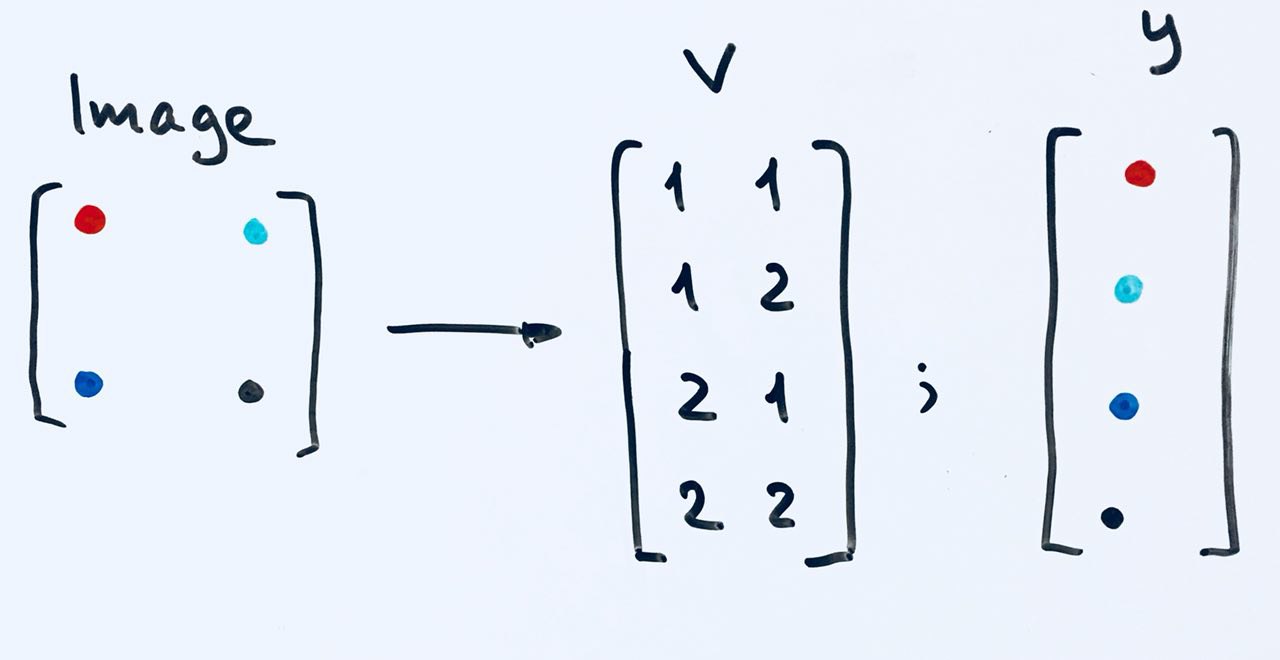 Image
V
y
1 1
1 2
2 1
;
2 2